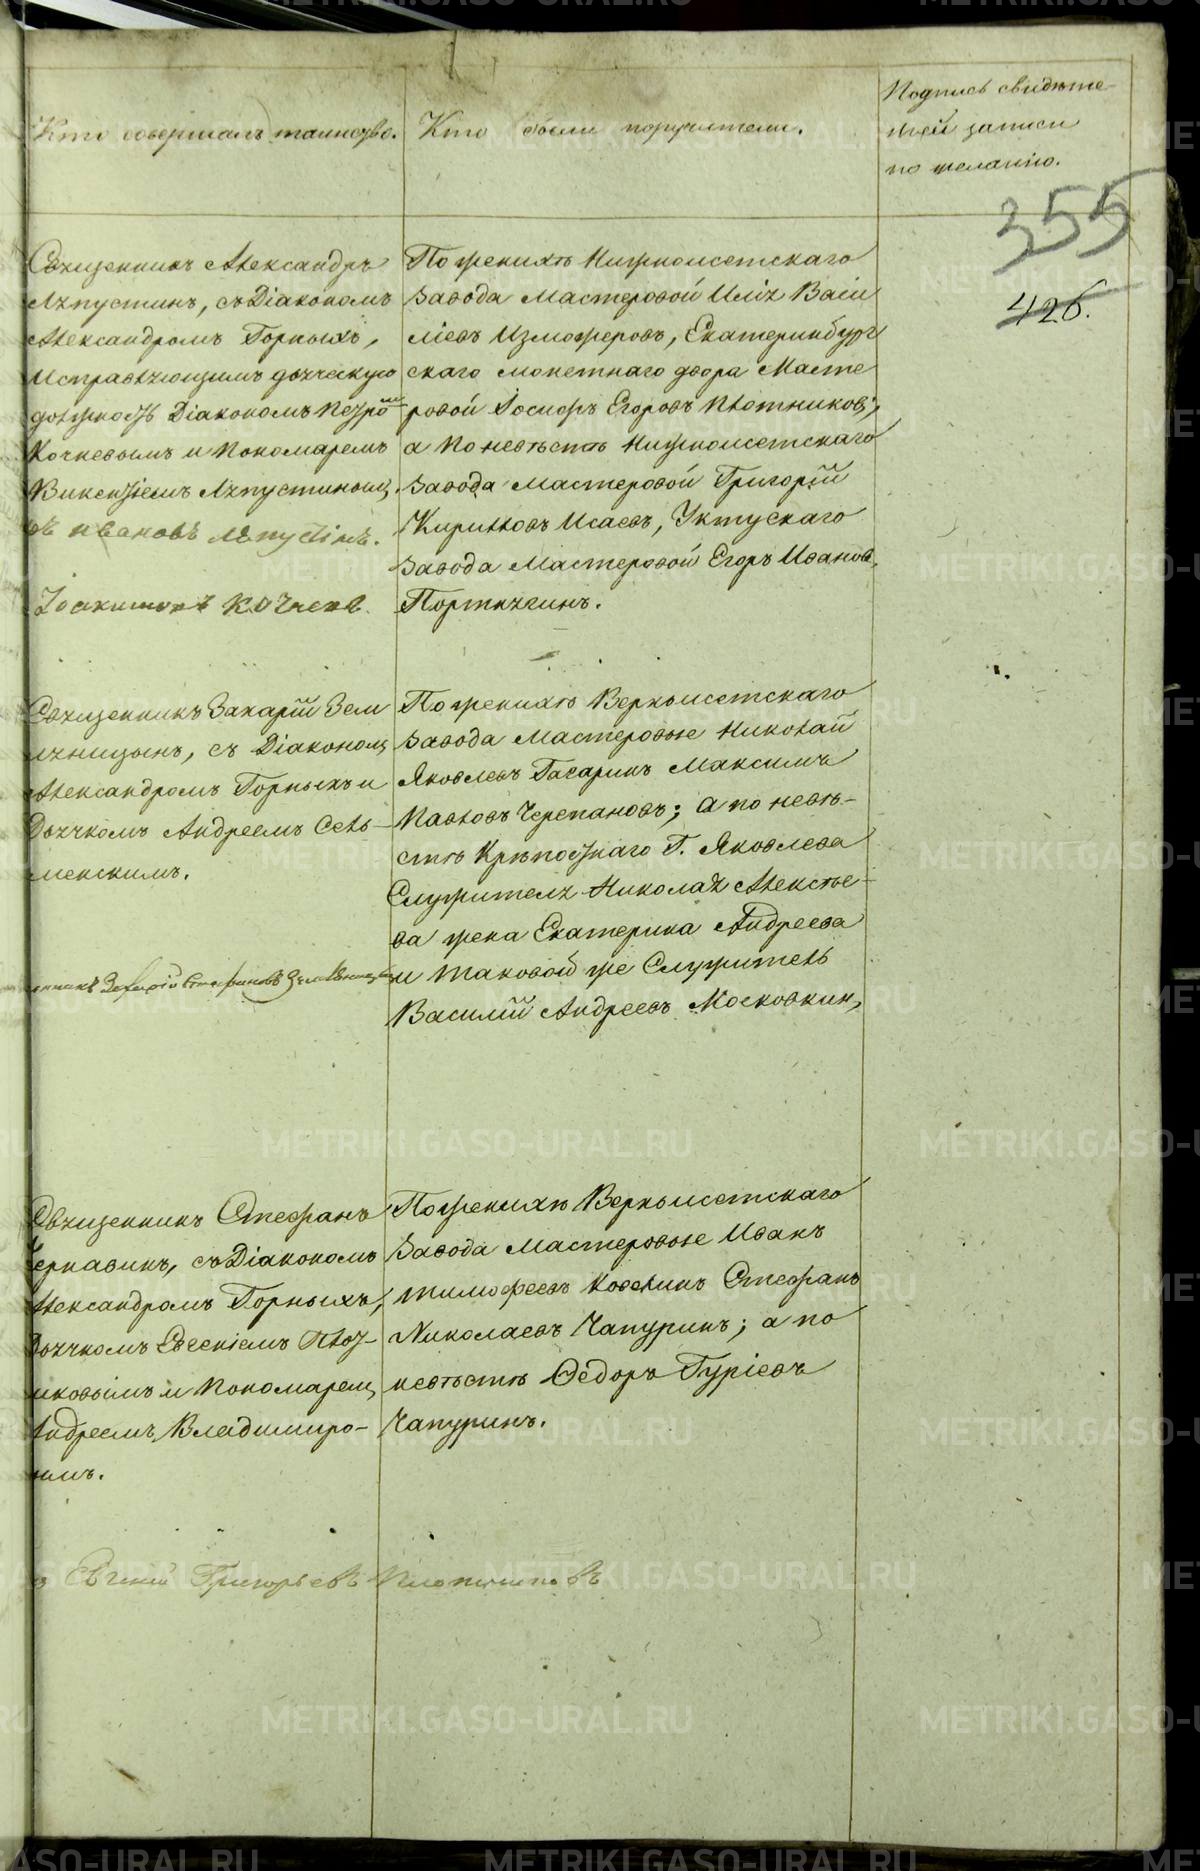 Кто совершалъ таинство.
Кто были поручители.
Подпись свидѣте
лей записи
по желанію.
355
426.
Священникъ Александръ
Ляпустинъ, съ Діакономъ
Александромъ Горныхъ,
Исправляющимъ дьяческую
должность Діакономъ Петромъ
Кочневымъ и Пономаремъ
Викентіемъ Ляпустиным,
Ивановъ Ляпустинъ.
Кочневъ.
По женихѣ Нижноисетскаго
завода Мастеровой Илія Васи
ліевъ Изможеровъ, Екатеринбург
скаго монетнаго двора Масте
ровой Іосифъ Егоровъ Плотниковъ;
а по невѣстѣ Нижноисетскаго
завода Мастеровой Григорій
Кирилловъ Исаевъ, Уктускаго
завода Мастеровой Егоръ Иванов,
Портнягинъ.
Священникъ Захарій Зем
ляницынъ, съ Діакономъ
Александромъ Горныхъ и
Дьячкомъ Андреемъ Сель-
менскимъ.
Захарій Стефановъ Земляницынъ
По женихѣ Верхисетскаго
завода Мастеровые Николай
Яковлевъ Гагаринъ Максимъ
Павловъ Черепановъ; а по невѣ-
стѣ Крѣпостнаго Г. Яковлева
Служителя Николая Алексѣе-
ва жена Екатерина Андреева
и таковой же Служитель
Василій Андреевъ Московкин,
Священникъ Стефанъ
Чернавинъ, съ Діакономъ
Александромъ Горныхъ,
Дьячкомъ Евгеніемъ Плот-
никовымъ и Пономарем,
Андреемъ Владимиро-
вымъ.
Евгеній Григорьевъ Плотниковъ
По женихѣ Верхисетскаго
завода Мастеровые Иванъ
Тимофеевъ Кобелинъ Стефанъ
Николаевъ Чапуринъ; а по
невѣстѣ Ѳедоръ Гуріевъ
Чапуринъ.
METRIKI.GASO-URAL.RU